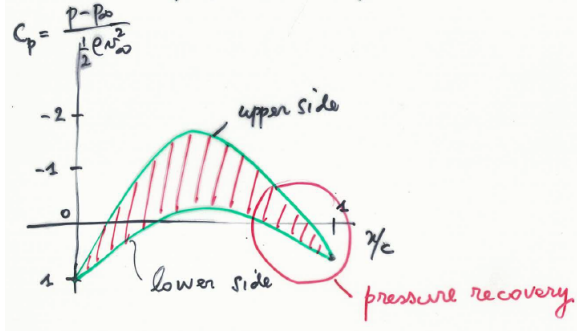 Cp = p - p∞ / ½ ρ v∞²
-2
upper side
-1
0
1
x/c
1
lower side
pressure recovery